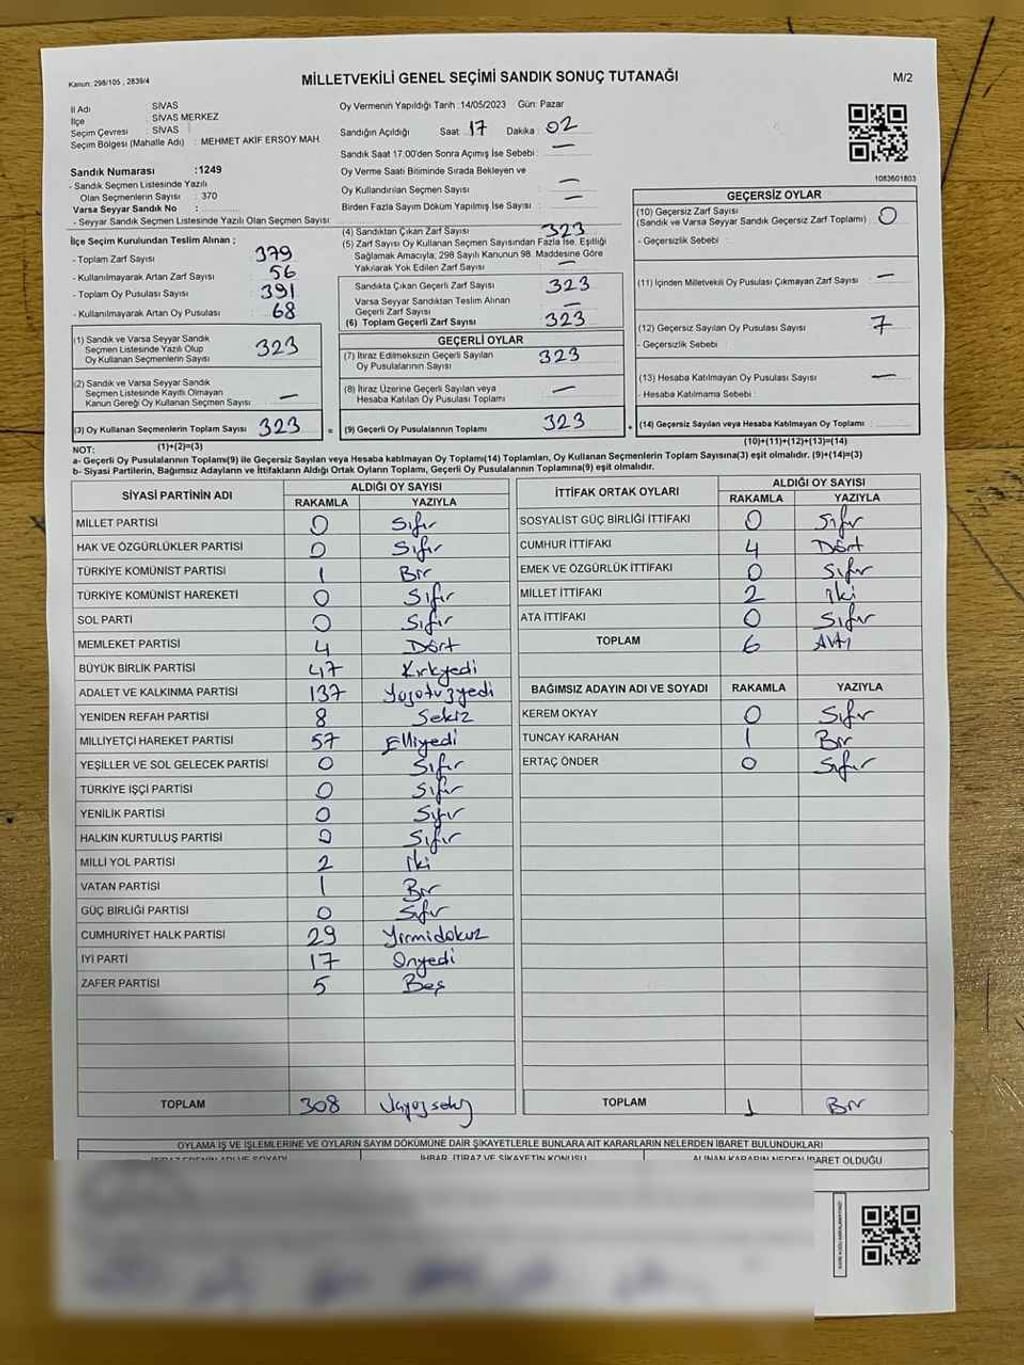 Kanun: 298/105 , 2839/4
MİLLETVEKİLİ GENEL SEÇİMİ SANDIK SONUÇ TUTANAĞI
M/2
İl Adı SİVAS
İlçe SİVAS MERKEZ
Seçim Çevresi : SİVAS
Seçim Bölgesi (Mahalle Adı) : MEHMET AKİF ERSOY MAH.
Oy Vermenin Yapıldığı Tarih :14/05/2023 Gün: Pazar
Sandığın Açıldığı Saat 17 Dakika 02
Sandık Saat 17:00'den Sonra Açımış İse Sebebi : —
Oy Verme Saati Bitiminde Sırada Bekleyen ve
Oy Kullandırılan Seçmen Sayısı —
Birden Fazla Sayım Döküm Yapılmış İse Sayısı : —
1083601803
Sandık Numarası :1249
- Sandık Seçmen Listesinde Yazılı
Olan Seçmenlerin Sayısı : 370
Varsa Seyyar Sandık No :
- Seyyar Sandık Seçmen Listesinde Yazılı Olan Seçmen Sayısı:
İlçe Seçim Kurulundan Teslim Alınan ;
- Toplam Zarf Sayısı 379
- Kullanılmayarak Artan Zarf Sayısı 56
- Toplam Oy Pusulası Sayısı 391
- Kullanılmayarak Artan Oy Pusulası 68
(1) Sandık ve Varsa Seyyar Sandık
Seçmen Listesinde Yazılı Olup
Oy Kullanan Seçmenlerin Sayısı 323
(2) Sandık ve Varsa Seyyar Sandık
Seçmen Listesinde Kayıtlı Olmayan
Kanun Gereği Oy Kullanan Seçmen Sayısı —
(3) Oy Kullanan Seçmenlerin Toplam Sayısı 323
(1)+(2)=(3)
(4) Sandıktan Çıkan Zarf Sayısı 323
(5) Zarf Sayısı Oy Kullanan Seçmen Sayısından Fazla İse, Eşitliği
Sağlamak Amacıyla, 298 Sayılı Kanunun 98. Maddesine Göre
Yakılarak Yok Edilen Zarf Sayısı —
Sandıkta Çıkan Geçerli Zarf Sayısı 323
Varsa Seyyar Sandıktan Teslim Alınan
Geçerli Zarf Sayısı —
(6) Toplam Geçerli Zarf Sayısı 323
GEÇERLİ OYLAR
(7) İtiraz Edilmeksizin Geçerli Sayılan
Oy Pusulalarının Sayısı 323
(8) İtiraz Üzerine Geçerli Sayılan veya
Hesaba Katılan Oy Pusulası Toplamı —
= (9) Geçerli Oy Pusulalarının Toplamı 323 +
GEÇERSİZ OYLAR
(10) Geçersiz Zarf Sayısı
(Sandık ve Varsa Seyyar Sandık Geçersiz Zarf Toplamı) 0
- Geçersizlik Sebebi :
(11) İçinden Milletvekili Oy Pusulası Çıkmayan Zarf Sayısı : —
(12) Geçersiz Sayılan Oy Pusulası Sayısı : 7
- Geçersizlik Sebebi
(13) Hesaba Katılmayan Oy Pusulası Sayısı : —
- Hesaba Katılmama Sebebi :
(14) Geçersiz Sayılan veya Hesaba Katılmayan Oy Toplamı :
(10)+(11)+(12)+(13)=(14)
NOT:
a- Geçerli Oy Pusulalarının Toplamı(9) ile Geçersiz Sayılan veya Hesaba katılmayan Oy Toplamı(14) Toplamları, Oy Kullanan Seçmenlerin Toplam Sayısına(3) eşit olmalıdır. (9)+(14)=(3)
b- Siyasi Partilerin, Bağımsız Adayların ve İttifakların Aldığı Ortak Oyların Toplamı, Geçerli Oy Pusulalarının Toplamına(9) eşit olmalıdır.
SİYASİ PARTİNİN ADI ALDIĞI OY SAYISI
RAKAMLA YAZIYLA
MİLLET PARTİSİ 0 Sıfır
HAK VE ÖZGÜRLÜKLER PARTİSİ 0 Sıfır
TÜRKİYE KOMÜNİST PARTİSİ 1 Bir
TÜRKİYE KOMÜNİST HAREKETİ 0 Sıfır
SOL PARTİ 0 Sıfır
MEMLEKET PARTİSİ 4 Dört
BÜYÜK BİRLİK PARTİSİ 47 Kırkyedi
ADALET VE KALKINMA PARTİSİ 137 Yüzotuzyedi
YENİDEN REFAH PARTİSİ 8 Sekiz
MİLLİYETÇİ HAREKET PARTİSİ 57 Elliyedi
YEŞİLLER VE SOL GELECEK PARTİSİ 0 Sıfır
TÜRKİYE İŞÇİ PARTİSİ 0 Sıfır
YENİLİK PARTİSİ 0 Sıfır
HALKIN KURTULUŞ PARTİSİ 0 Sıfır
MİLLİ YOL PARTİSİ 2 İki
VATAN PARTİSİ 1 Bir
GÜÇ BİRLİĞİ PARTİSİ 0 Sıfır
CUMHURİYET HALK PARTİSİ 29 Yirmidokuz
İYİ PARTİ 17 Onyedi
ZAFER PARTİSİ 5 Beş
TOPLAM 308
İTTİFAK ORTAK OYLARI ALDIĞI OY SAYISI
RAKAMLA YAZIYLA
SOSYALİST GÜÇ BİRLİĞİ İTTİFAKI 0 Sıfır
CUMHUR İTTİFAKI 4 Dört
EMEK VE ÖZGÜRLÜK İTTİFAKI 0 Sıfır
MİLLET İTTİFAKI 2 İki
ATA İTTİFAKI 0 Sıfır
TOPLAM 6 Altı
BAĞIMSIZ ADAYIN ADI VE SOYADI RAKAMLA YAZIYLA
KEREM OKYAY 0 Sıfır
TUNCAY KARAHAN 1 Bir
ERTAÇ ÖNDER 0 Sıfır
TOPLAM 1 Bir
OYLAMA İŞ VE İŞLEMLERİNE VE OYLARIN SAYIM DÖKÜMÜNE DAİR ŞİKAYETLERLE BUNLARA AİT KARARLARIN NELERDEN İBARET BULUNDUKLARI
İTİRAZ EDENİN ADI VE SOYADI İHBAR, İTİRAZ VE ŞİKAYETİN KONUSU ALINAN KARARIN NEDEN İBARET OLDUĞU